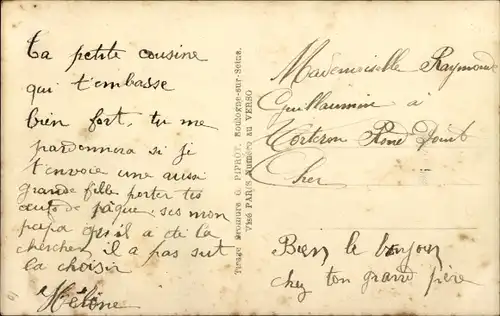 Ta petite cousine
qui t'embasse
bien fort, tu me
pardonnera si je
t'envoie une aussi
grande fille porter tes
œufs de pâque, ses mon
papa qu'il a de la
chercher, il a pas sut
la choisir
Hélène
Tirage Bromure G. PIPROT, Boulogne-sur-Seine.
Visé PARIS Numéro au VERSO
Mademoiselle Raymonde
Guillaumin à
Rond Point
Cher
Bien le bonjour
chez ton grand père